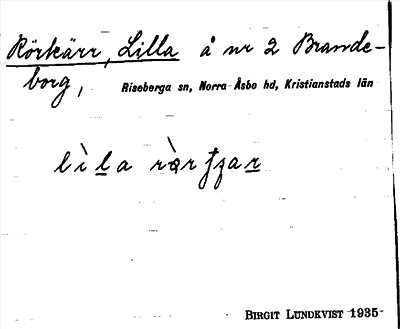 Rörkärr, Lilla å nr 2 Brande-
borg, Riseberga sn, Norra Åsbo hd, Kristianstads län
BIRGIT LUNDKVIST 1935